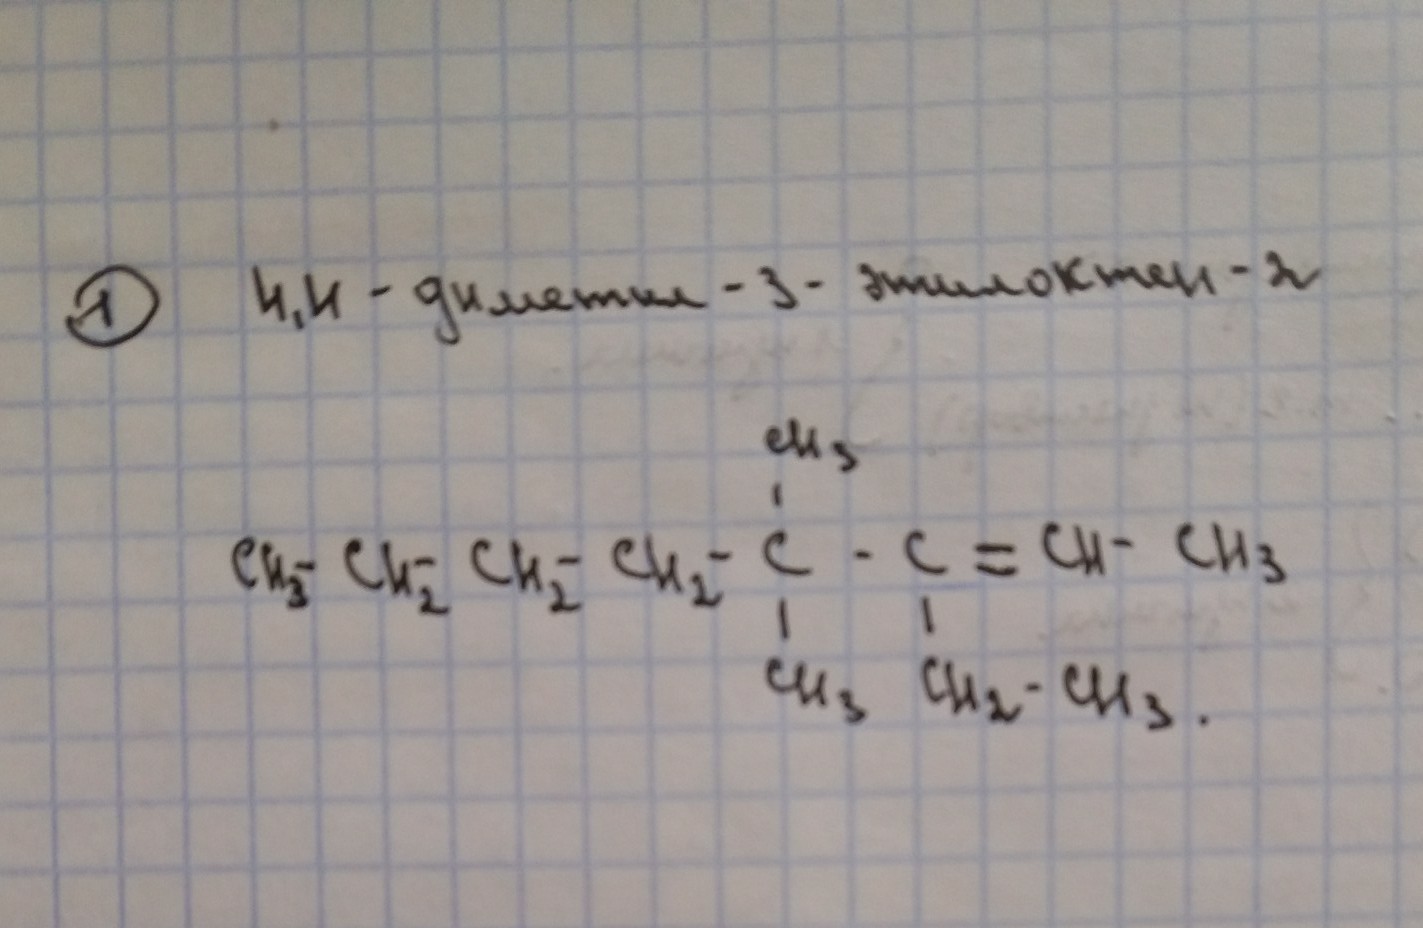 ① 4,4 - диметил - 3 - этилоктен - 2
CH3
CH3- CH2- CH2- CH2- C - C = CH- CH3
CH3 CH2- CH3.